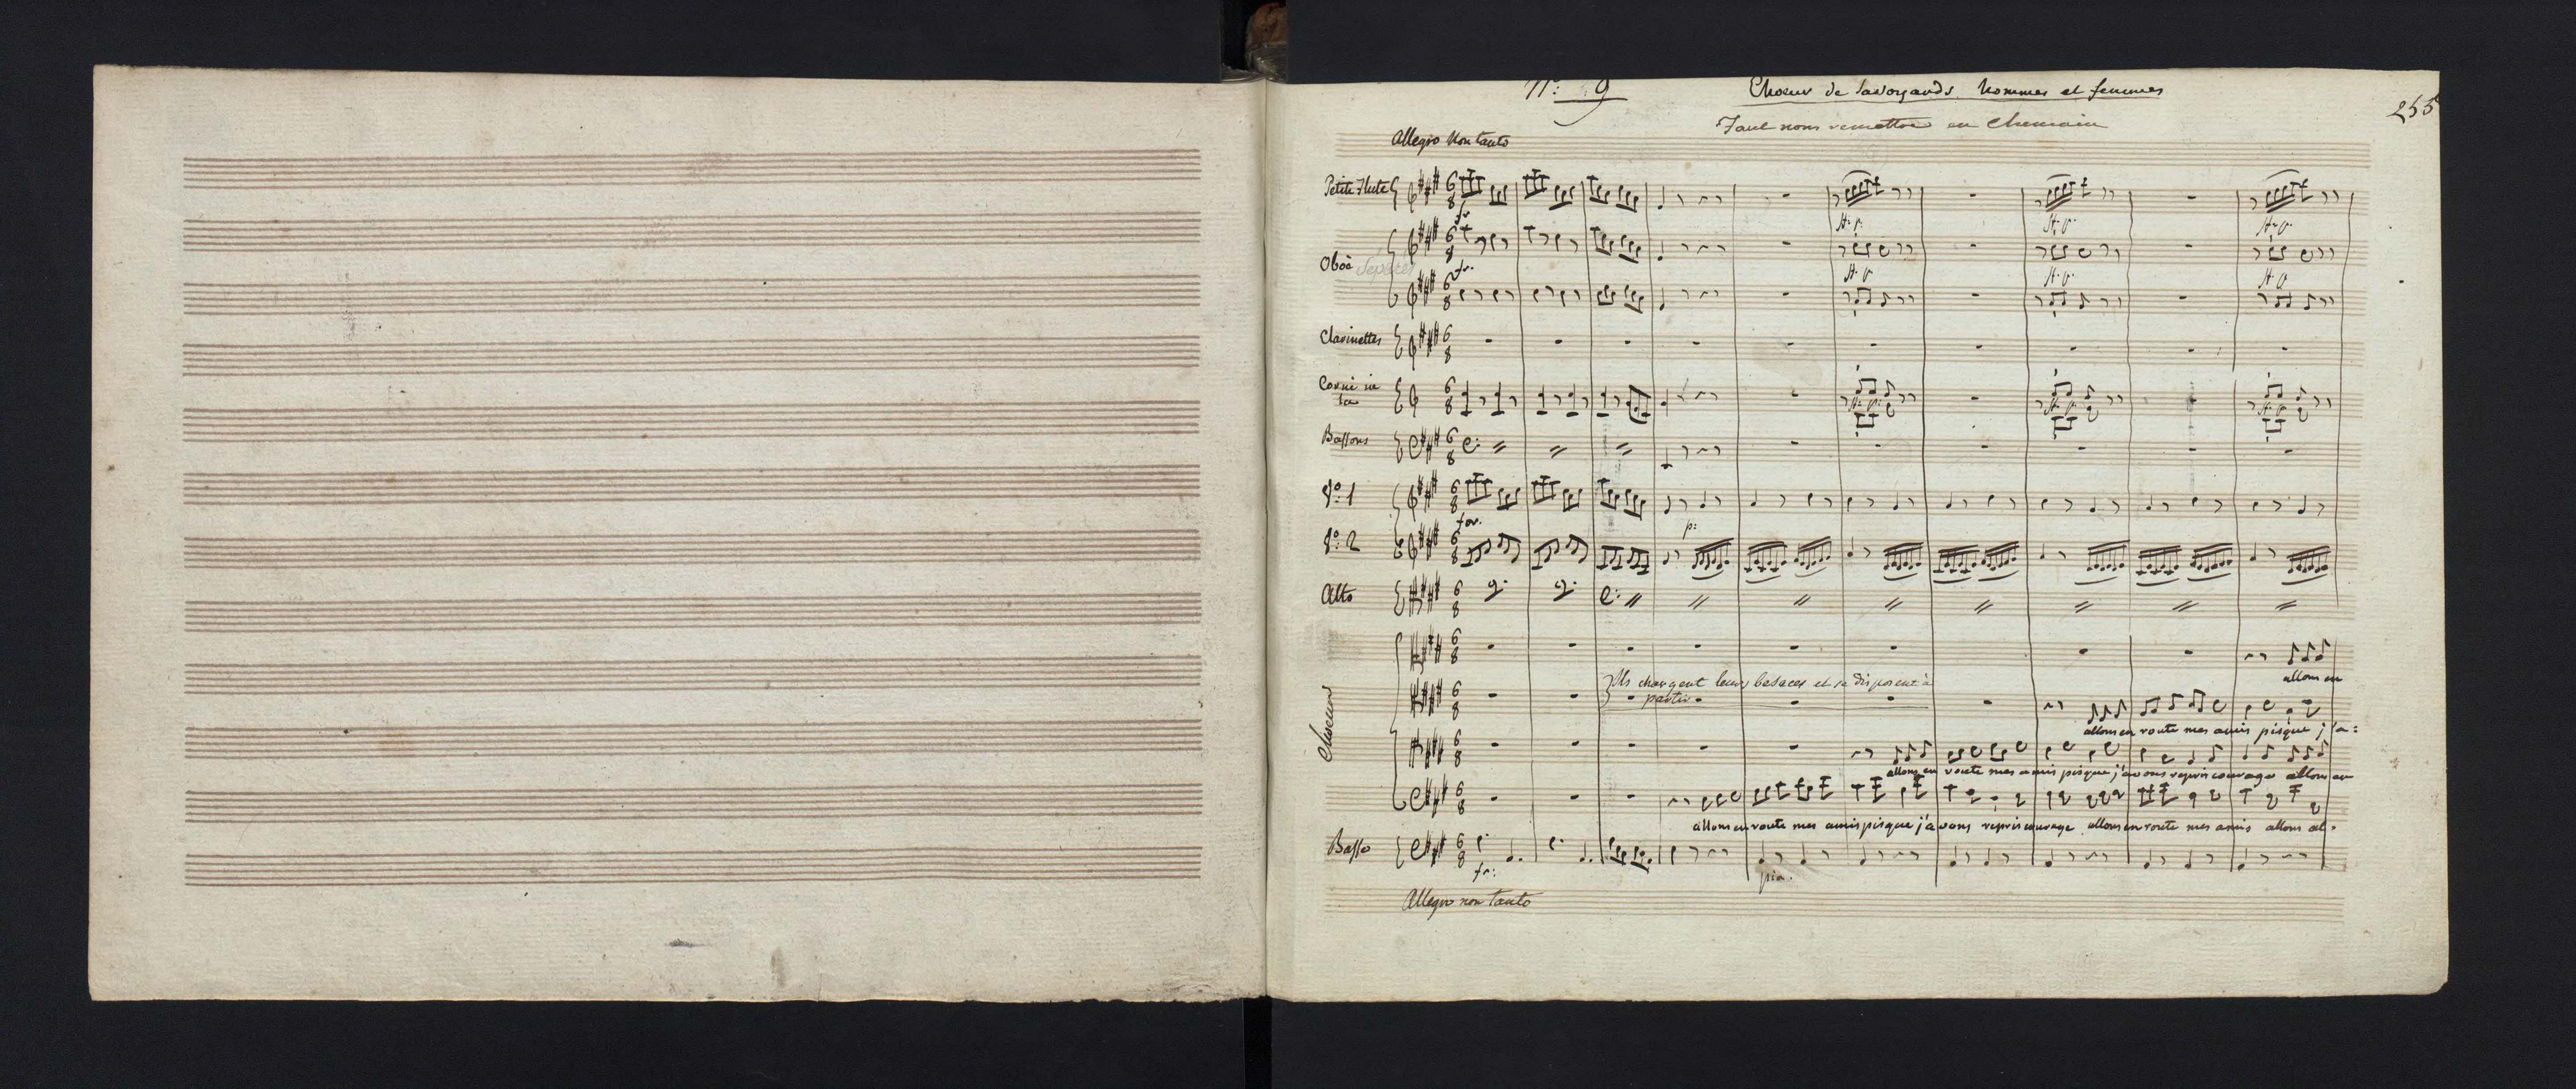 N.º 9
Choeur de savoyards hommes et femmes
255
Faut nous remettre en chemain
Allegro Non tanto
Petite Flute
fr.
Oboè
separés
fr.
Clarinettes
Corni in
la
Bassons
V.º 1
for.
p:
V.º 2
Alto
Choeurs
allons en
Ils chargent leurs besaces et se disposent à
partir
allons en route mes amis pisque j'a=
allons en route mes amis pisque j'avons repris courage allons en
allons en route mes amis pisque j'avons repris courage allons en route mes amis allons al=
Basso
fr:
pia.
Allegro non Tanto